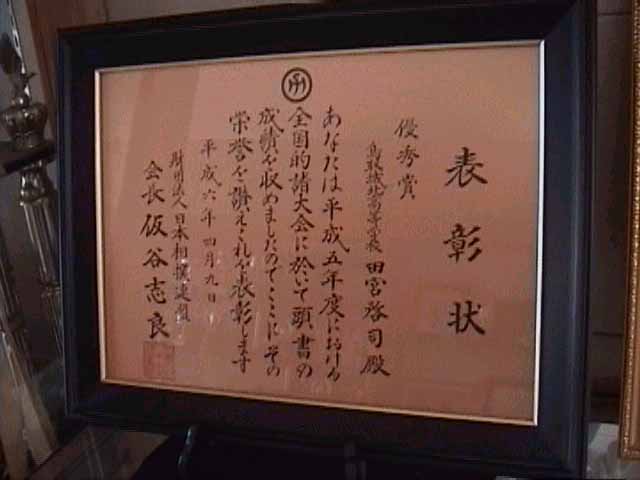 表彰状
優秀賞
鳥取城北高等学校 田宮啓司殿
あなたは平成五年度における
全国的諸大会に於いて頭書の
成績を収めましたのでここにその
栄誉を讃えこれを表彰します
平成六年四月九日
財団法人日本相撲連盟
会長 仮谷志良